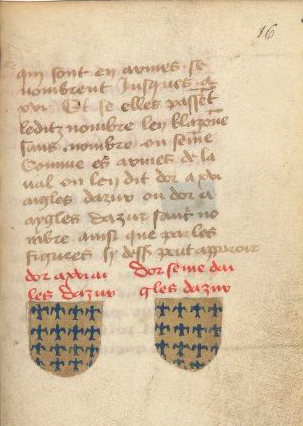 16
qui sont en armes se
nombrent Jusques a
xvi Et se elles passet
leditz nombre len blazone
sans nombre ou seme
Comme es armes de la
ual on len dit dor a xvi
aigles dazur ou dor a
aygles dazur sans no
mbre ainsi que par les
figures sy dess peut apparoir
dor a xvi ai
gles dazur
Dor seme dai
gles dazur